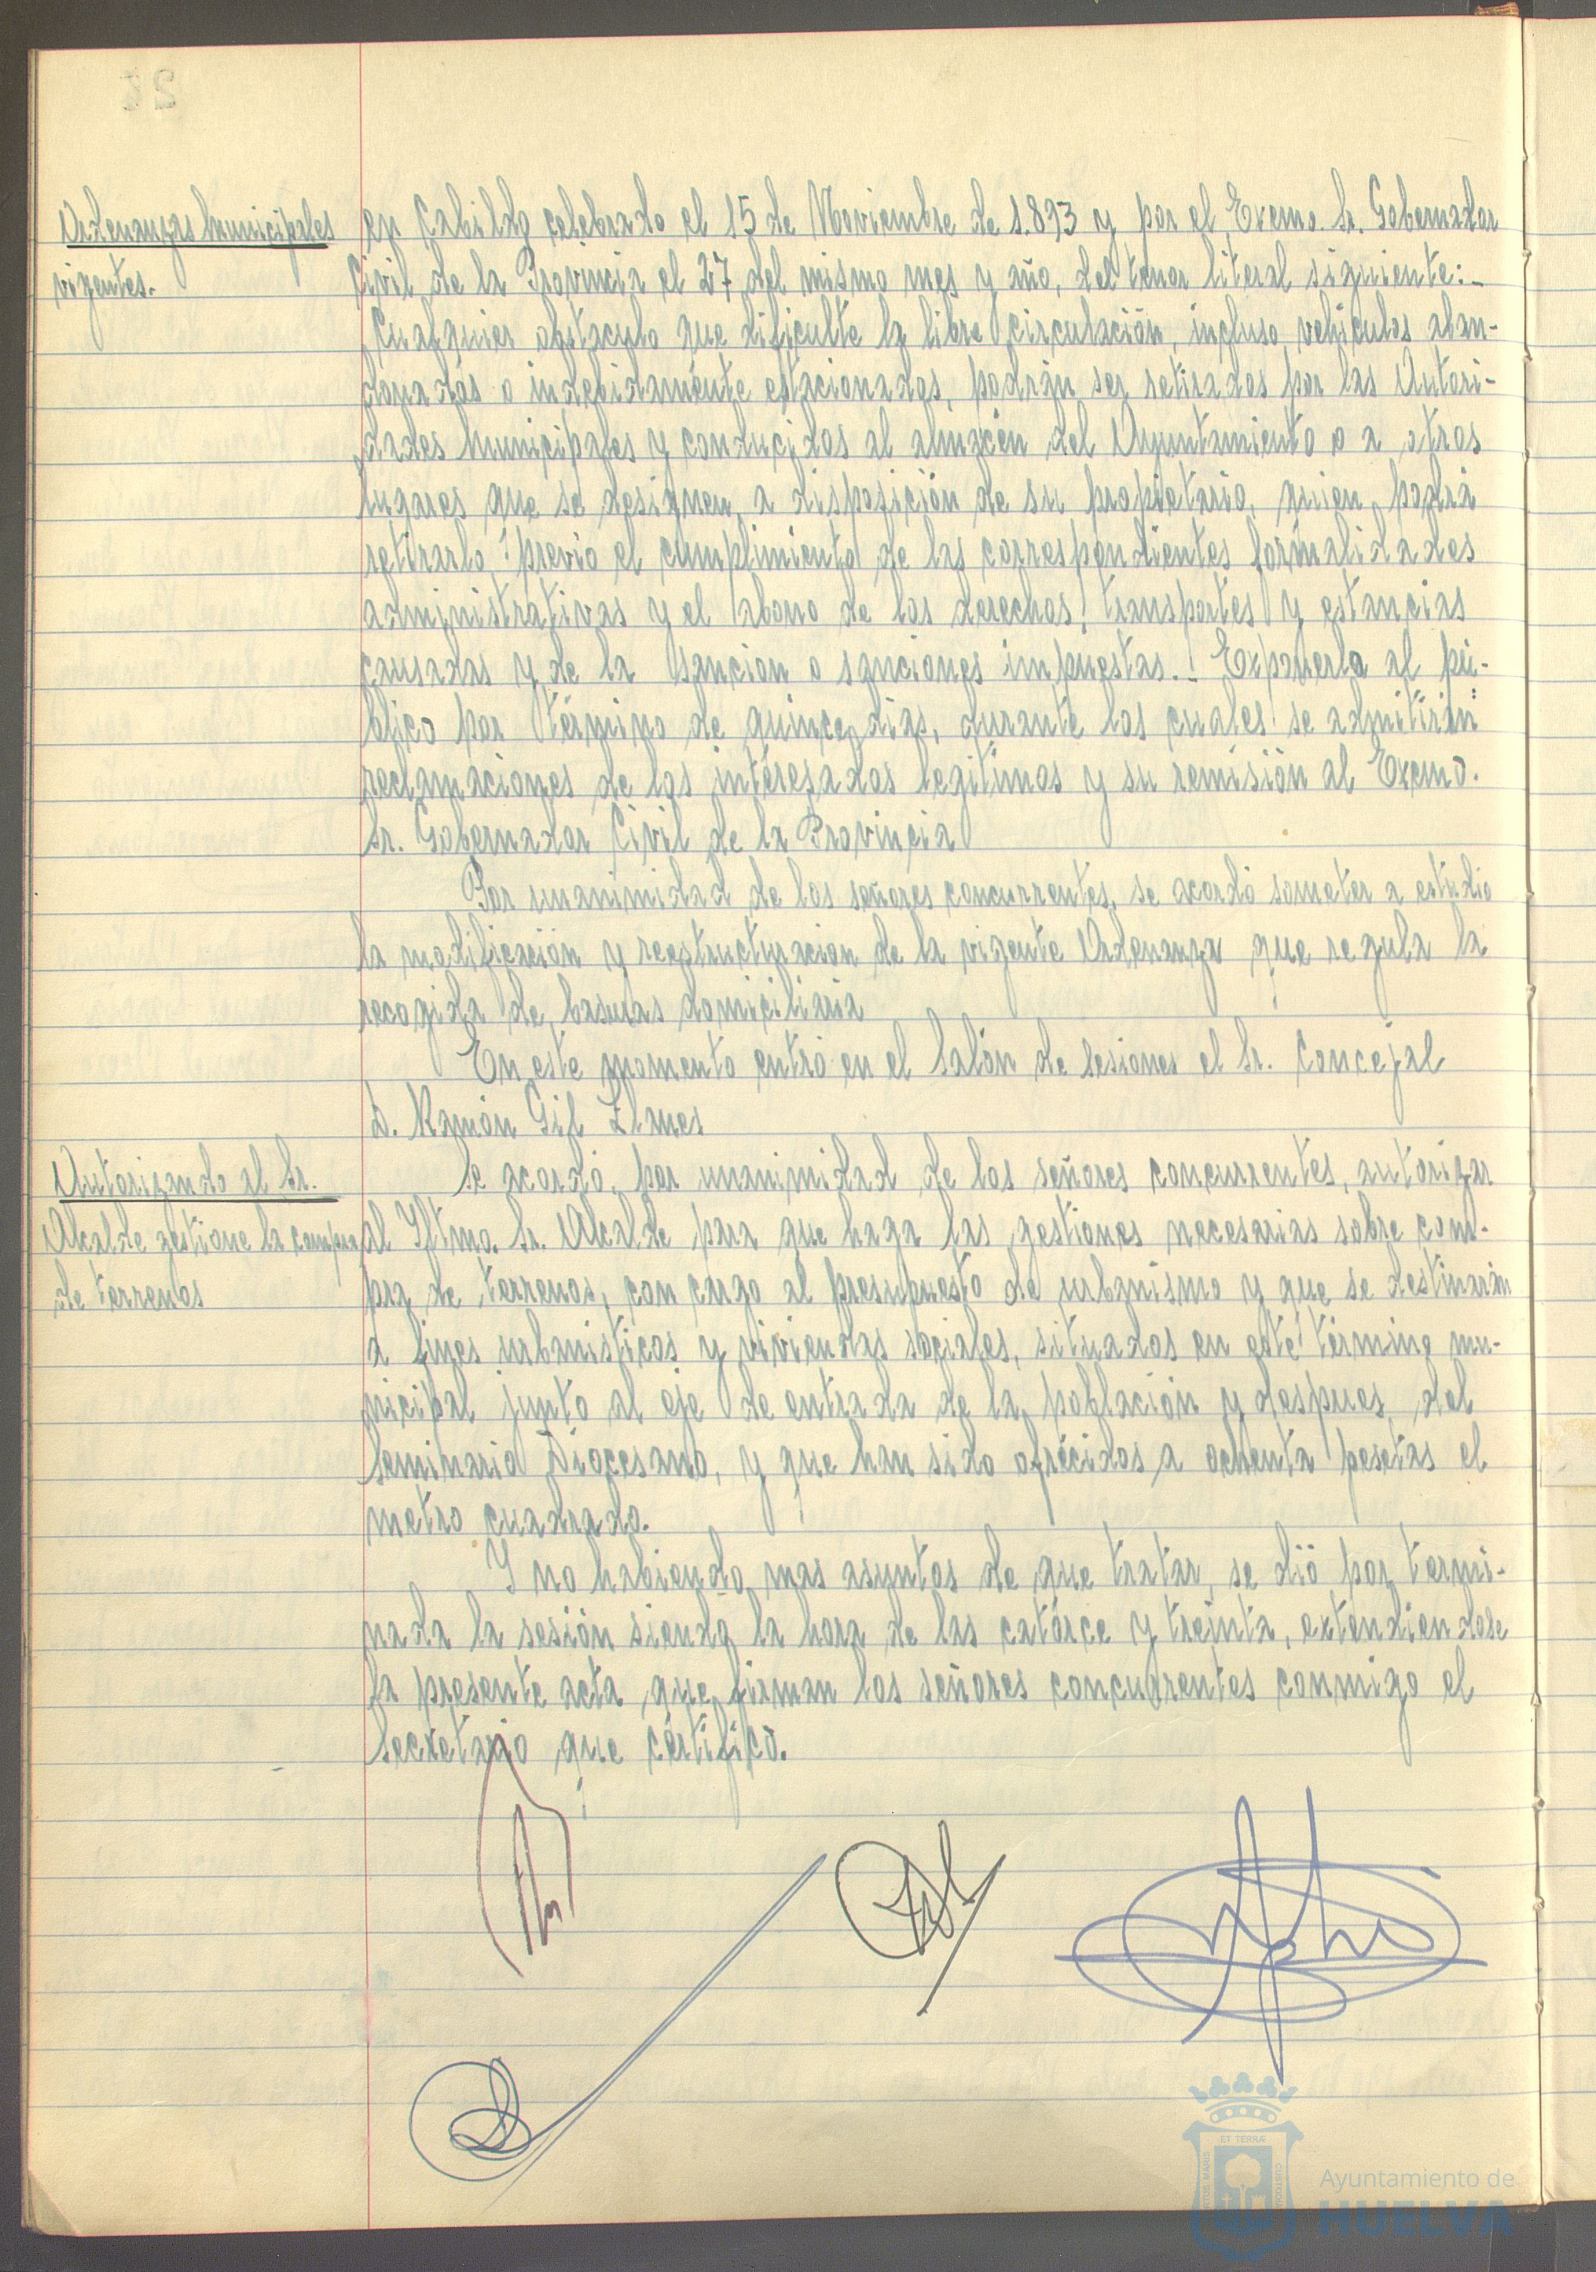 Ordenanzas Municipales
vigentes.
en Cabildo celebrado el 15 de Noviembre de 1.893 y por el Excmo. Sr. Gobernador
Civil de la Provincia el 27 del mismo mes y año, del tenor literal siguiente:-
Cualquier obstaculo que dificulte la libre circulación, incluso vehiculos aban-
donados o indebidamente estacionados, podrán ser retirados por las Autori-
dades Municipales y conducidos al almacén del Ayuntamiento o a otros
lugares que se designen, a disposición de su propietario, quien podrá
retirarlo previo el cumplimiento de las correspondientes formalidades
administrativas y el abono de los derechos, transportes y estancias
causadas y de la sanción o sanciones impuestas. Exponerla al pú-
blico por término de quince dias, durante los cuales se admitirán
reclamaciones de los interesados legitimos y su remisión al Excmo.
Sr. Gobernador Civil de la Provincia
Por unanimidad de los señores concurrentes, se acordó someter a estudio
la modificación y reestructuración de la vigente Ordenanza que regula la
recogida de basuras domiciliaria
En este momento entró en el Salón de Sesiones el Sr. Concejal
D. Ramón Gil Llanes
Autorizando al Sr.
Alcalde gestione la compra
de terrenos
Se acordó, por unanimidad de los señores concurrentes, autorizar
al Iltmo. Sr. Alcalde para que haga las gestiones necesarias sobre com-
pra de terrenos, con cargo al presupuesto de urbanismo y que se destinarán
a fines urbanisticos y viviendas sociales, situados en este término mu-
nicipal junto al eje de entrada de la población y despues del
Seminario Diocesano, y que han sido ofrécidos a ochenta pesetas el
metro cuadrado.
Y no habiendo mas asuntos de que tratar, se dió por termi-
nada la sesión siendo la hora de las catorce y treinta, extendiendose
la presente acta que firman los señores concurrentes conmigo el
Secretario que certifico.
ET TERRÆ
Ayuntamiento de
HUELVA